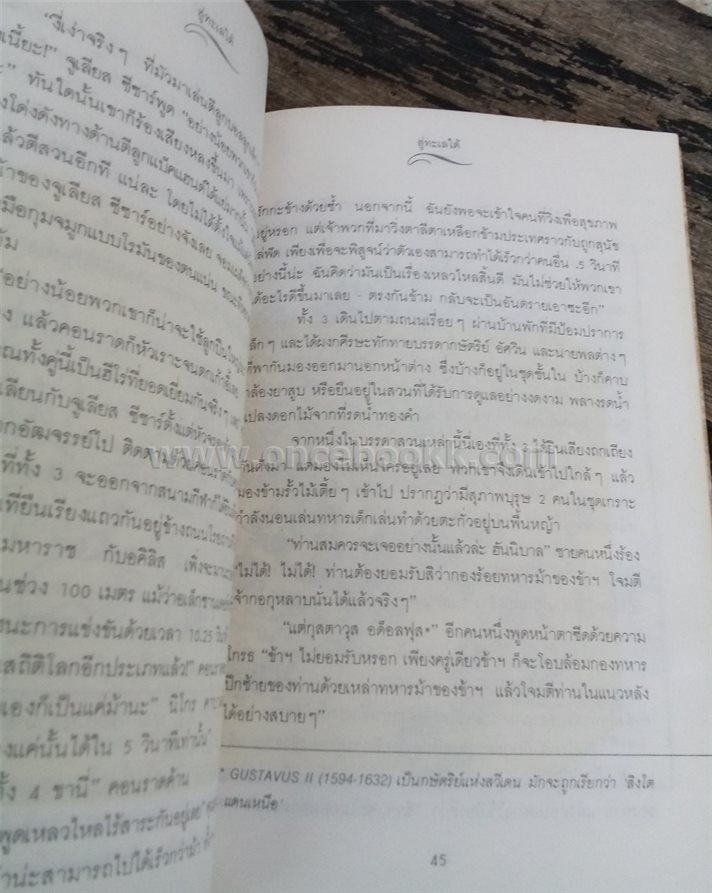 สู่ทะเลใต้
"งี่เง่าจริงๆ ที่มัวมาเล่นตีลูกบอลลูก
เนี้ยะ!" จูเลียส ซีซาร์พูด "อย่างน้อยพวกเขา
ทันใดนั้นเขาก็ร้องเสียงหลงขึ้นมา
โด่งดังทางด้านตีลูกแบ๊คแฮนด์ได้
แล้วตีสวนอีกที แน่ละ โดยไม่ได้ตั้งใจ
ของจูเลียส ซีซาร์อย่างจังเลย
มือกุมจมูกแบบโรมันของตนแน่น
อย่างน้อยพวกเขาก็น่าจะใช้ลูก
แล้วคอนราดก็หัวเราะจน
ทั้งคู่นี้เป็นฮีโร่ที่ยอดเยี่ยมกันจริงๆ
กับจูเลียส ซีซาร์ตั้งแต่หัว
อัฒจรรย์ไป ติดตามด้วย
ที่ทั้ง 3 จะออกจากสนามกีฬา
ที่ยืนเรียงแถวกันอยู่ข้างถนน
มหาราช กับอคิลิส เพิ่งจะ
ช่วง 100 เมตร แม้ว่าอเล็กซาน
ชนะการแข่งขันด้วยเวลา 10.25
สถิติโลกอีกประเภทแล้ว!"
เองก็เป็นแค่ม้านะ" นิโกร
แค่นั้นได้ใน 5 วินาทีเท่านั้น
ทั้ง 4 ขานี่" คอนราดค้าน
พูดเหลวไหลไร้สาระกันอยู่
น่ะสามารถไปได้เร็วกว่าม้า
สู่ทะเลใต้
รักกะช้างด้วยซ้ำ นอกจากนี้ ฉันยังพอจะเข้าใจคนที่วิ่งเพื่อสุขภาพ
อยู่หรอก แต่เจ้าพวกที่มาวิ่งตาลีตาเหลือกข้ามประเทศราวกับถูกสุนัข
ไล่ฟัด เพียงเพื่อจะพิสูจน์ว่าตัวเองสามารถทำได้เร็วกว่าคนอื่น .5 วินาที
อย่างนี้น่ะ ฉันคิดว่ามันเป็นเรื่องเหลวไหลสิ้นดี มันไม่ช่วยให้พวกเขา
ได้อะไรดีขึ้นมาเลย - ตรงกันข้าม กลับจะเป็นอันตรายเอาซะอีก"
ทั้ง 3 เดินไปตามถนนเรื่อยๆ ผ่านบ้านพักที่มีป้อมปราการ
เล็กๆ และได้ผงกศีรษะทักทายบรรดากษัตริย์ อัศวิน และนายพลต่างๆ
ที่พากันมองออกมานอกหน้าต่าง ซึ่งบ้างก็อยู่ในชุดชั้นใน บ้างก็คาบ
กล้องยาสูบ หรือยืนอยู่ในสวนที่ได้รับการดูแลอย่างงดงาม พลางรดน้ำ
แปลงดอกไม้จากที่รดน้ำทองคำ
จากหนึ่งในบรรดาสวนเหล่านี้นี่เองที่ทั้ง 3 ได้ยินเสียงถกเถียง
กันดังมา แต่มองไม่เห็นใครอยู่เลย พวกเขาจึงเดินเข้าไปใกล้ๆ แล้ว
มองข้ามรั้วไม้เตี้ยๆ เข้าไป ปรากฏว่ามีสุภาพบุรุษ 2 คนในชุดเกราะ
กำลังนอนเล่นทหารเด็กเล่นทำด้วยตะกั่วอยู่บนพื้นหญ้า
"ท่านสมควรจะเจออย่างนั้นแล้วล่ะ ฮันนิบาล" ชายคนหนึ่งร้อง
"ไม่ได้! ไม่ได้! ท่านต้องยอมรับสิว่ากองร้อยทหารม้าของข้าฯ โจมตี
เจ้ากอกุหลาบนั้นได้แล้วจริงๆ"
"แต่กุสตาวุส อด็อลฟุส*" อีกคนหนึ่งพูดหน้าตาซีดด้วยความ
โกรธ "ข้าฯ ไม่ยอมรับหรอก เพียงครู่เดียวข้าฯ ก็จะโอบล้อมกองทหาร
ปีกซ้ายของท่านด้วยเหล่าทหารม้าของข้าฯ แล้วโจมตีท่านในแนวหลัง
ได้อย่างสบายๆ"
* GUSTAVUS II (1594-1632) เป็นกษัตริย์แห่งสวีเดน มักจะถูกเรียกว่า 'สิงโต
แดนเหนือ'
45
www.oncebookk.com